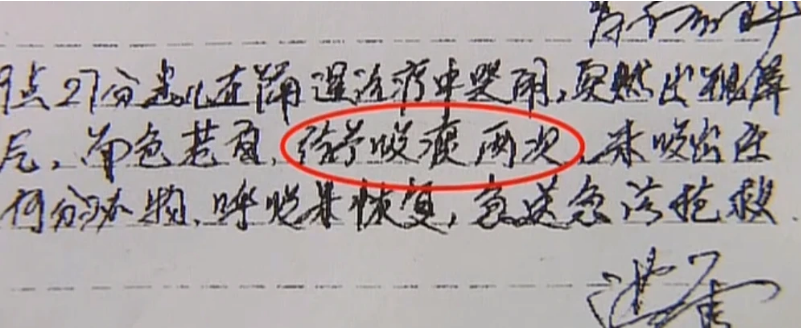 9点27分患儿在隔逞治疗中哭闹,突然出现屏
气,面色苍白,给予吸痰两次,未吸出任
何分泌物,呼吸未恢复,急送急诊抢救